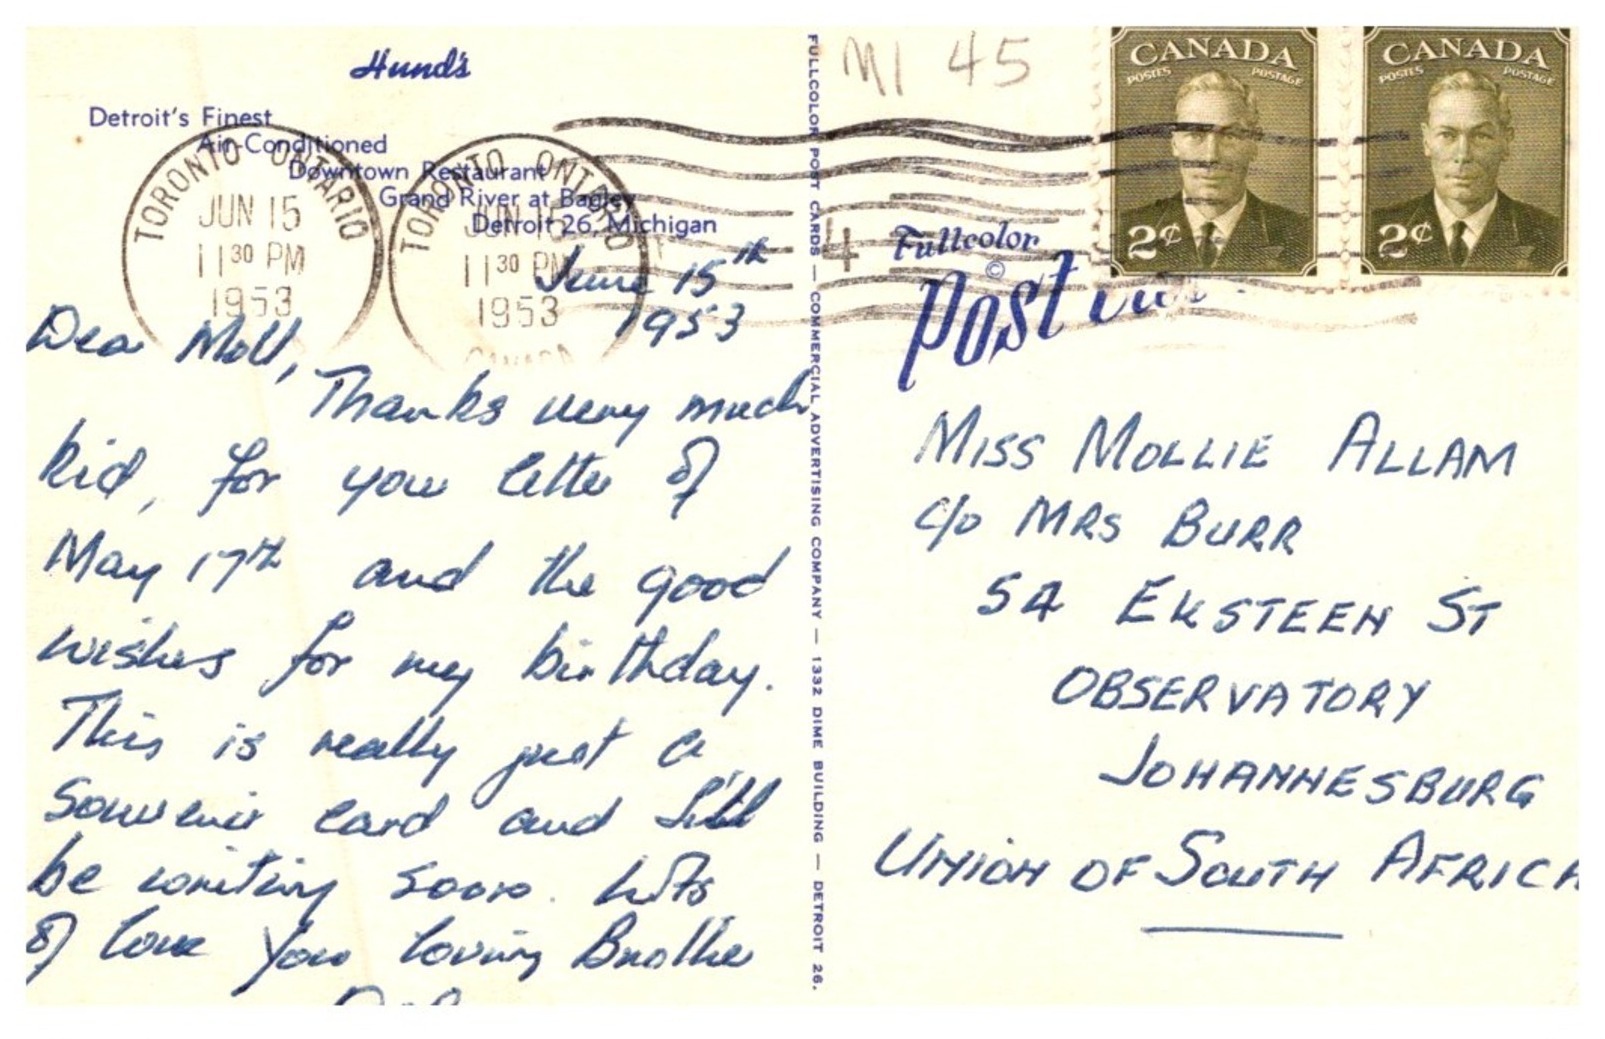 Hund's
Detroit's Finest
Air-Conditioned
Downtown Restaurant
Grand River at Bagley
Detroit 26, Michigan
TORONTO ONTARIO
JUN 15
11 30 PM
1953
TORONTO ONTARIO
JUN 15
11 30 PM
1953
CANADA
June 15th
1953
Dear Moll,
Thanks very much
kid, for your letter of
May 17th and the good
wishes for my birthday.
This is really just a
souvenir card and I'll
be writing soon. Lots
of love Your loving Brother
FULLCOLOR POST CARDS — COMMERCIAL ADVERTISING COMPANY — 1332 DIME BUILDING — DETROIT 26.
MI 45
4
CANADA
POSTES POSTAGE
2¢
CANADA
POSTES POSTAGE
2¢
Fullcolor
©
Post card
MISS MOLLIE ALLAM
c/o MRS BURR
54 EKSTEEN ST
OBSERVATORY
JOHANNESBURG
UNION OF SOUTH AFRICA